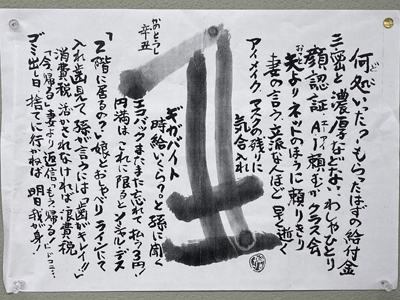 何処いった?もらったはずの給付金
ど
三密と濃厚などなぃわしゃひとり
顔認証AIに頼むがクラス会
夫よりネットのほうに頼りきり
妻の言う立派な人ほど早く逝く
アイメイク マスクの残りに
気合入れ
ギガバイト
時給いくら?と孫に聞く
エコバックまたまた忘れて払う3円!
円満はこれに限るとソーシャルデス
丑
かのとうし
辛丑
「2階に居るの?」娘とおしゃべりラインにて
入れ歯見て 孫が言うには「歯がキレイ!!」
消費税 活かされなければ、浪費税
「今、帰る」妻より返信「もう、帰る?」
ゴミ出し日 捨てに行かねば 明日我が身!